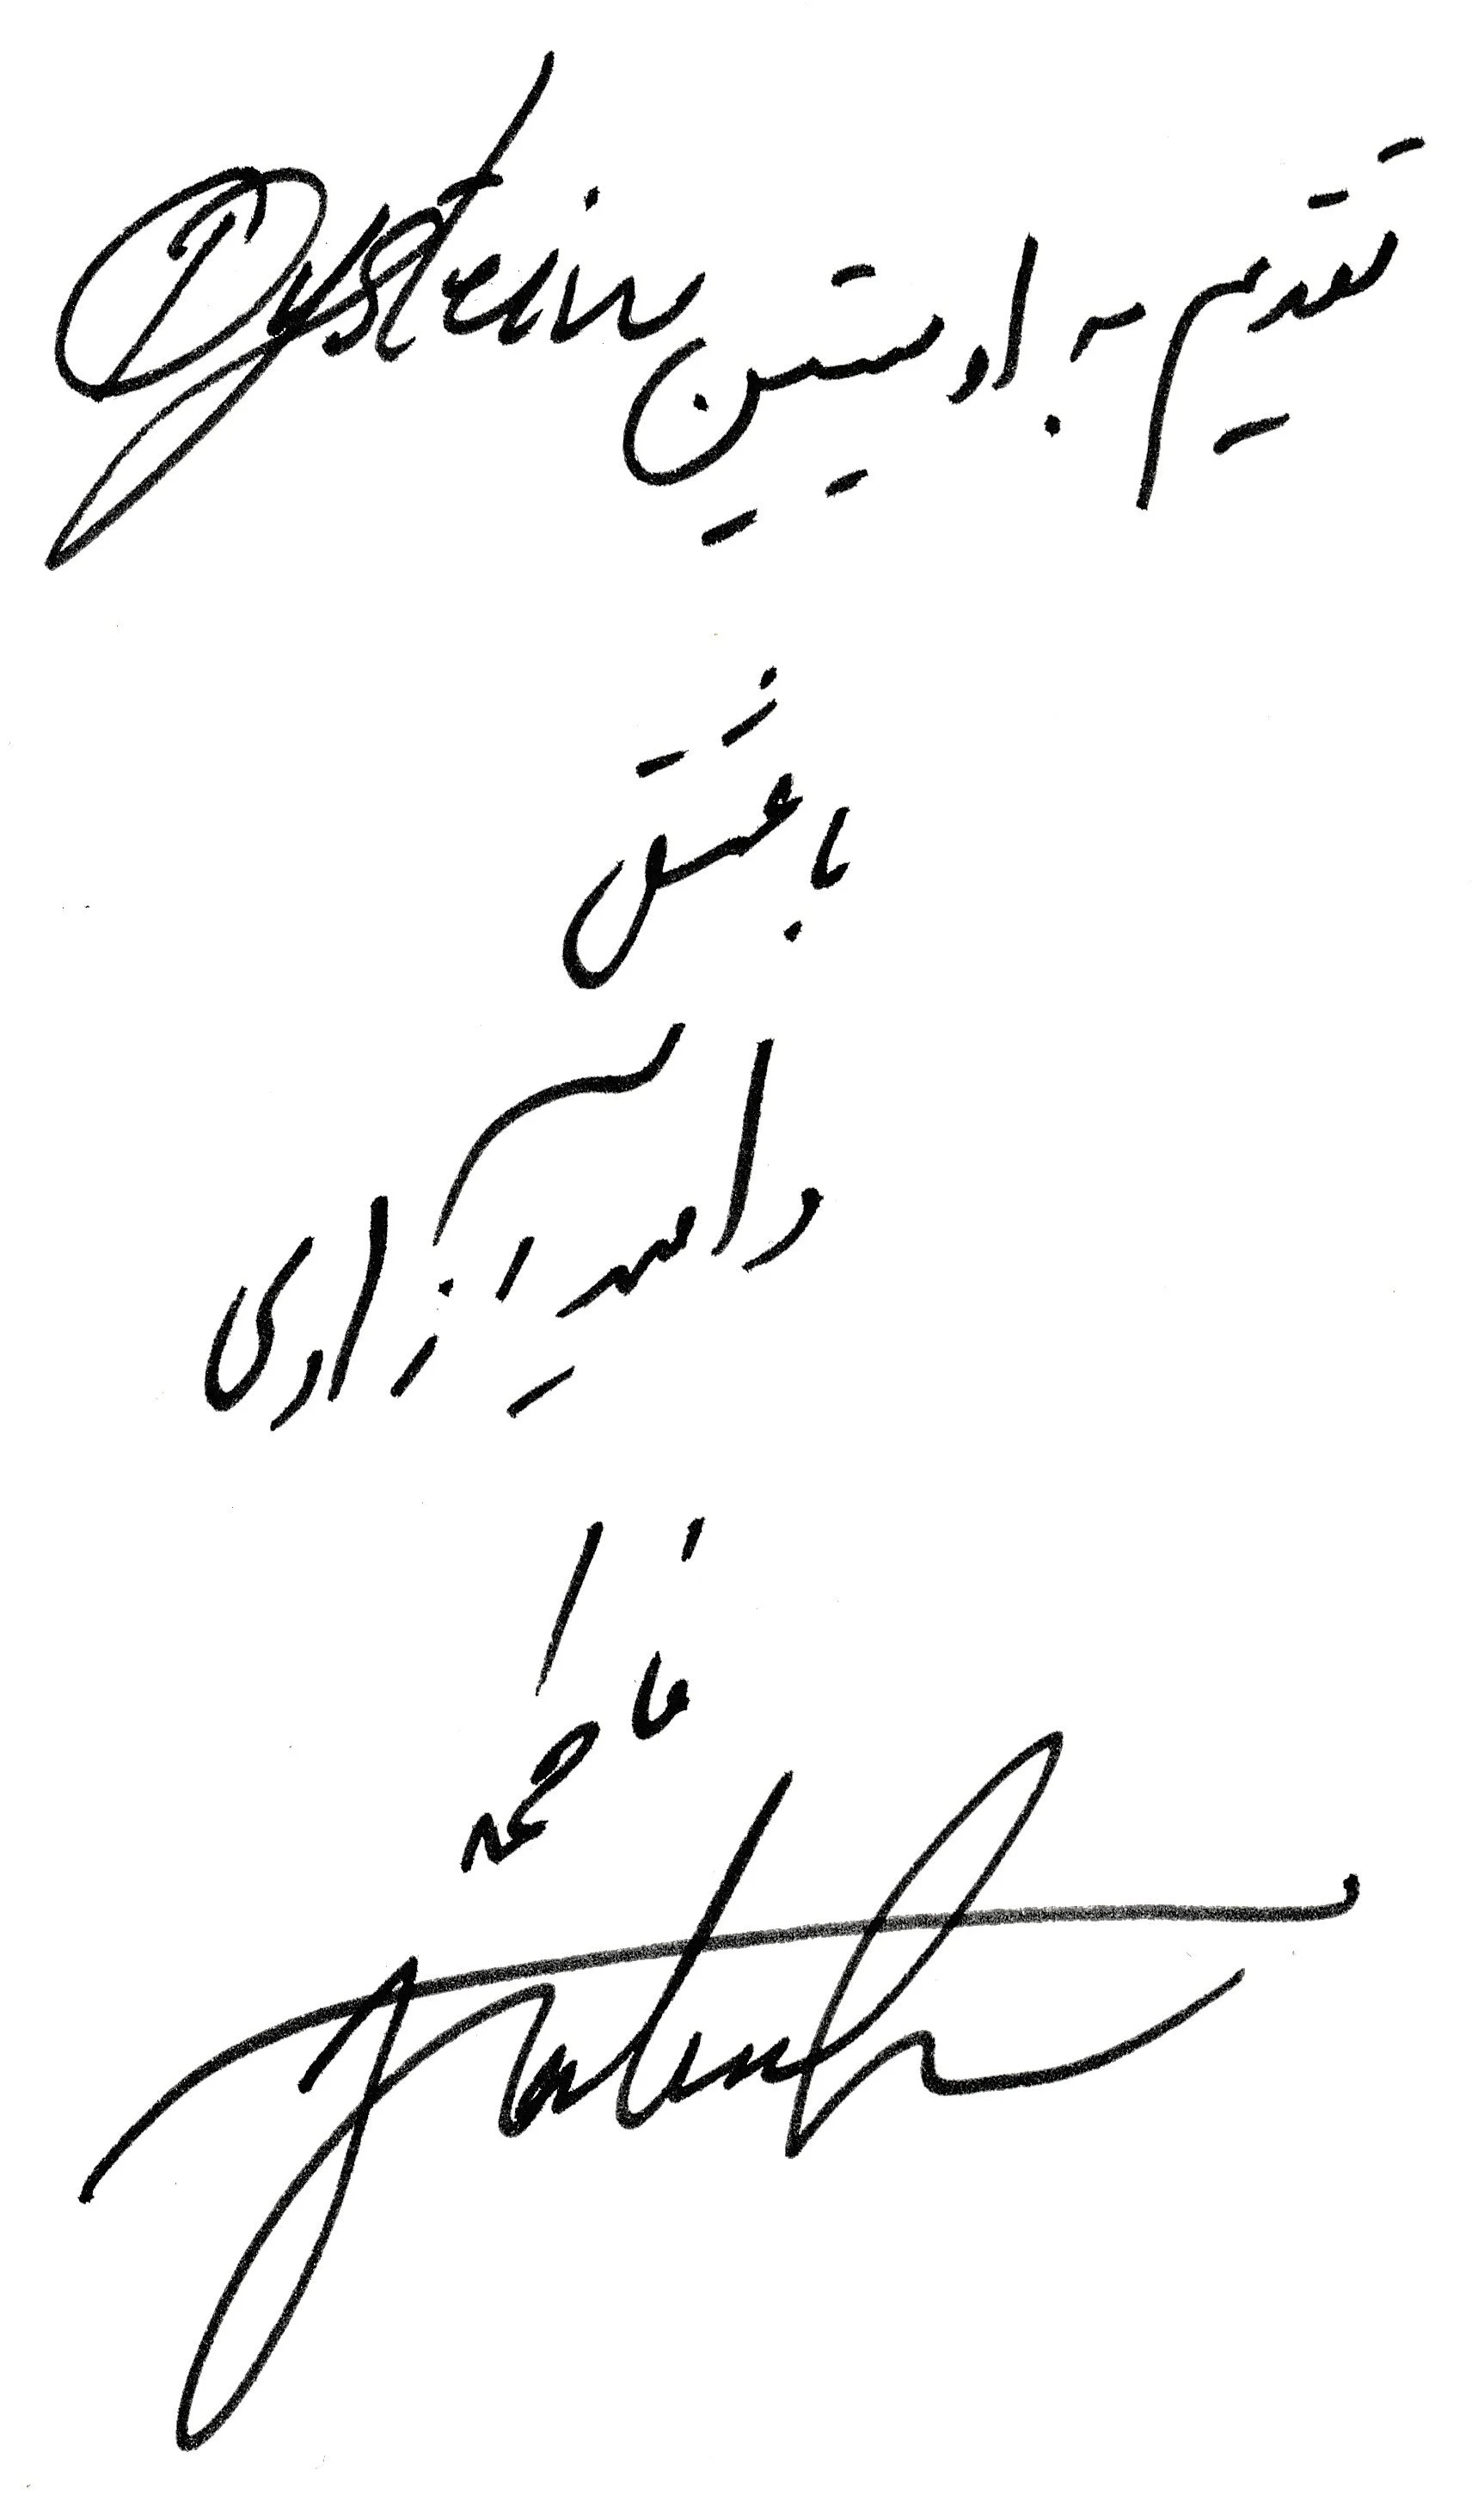 تقدیم به اویستین Oystein
با عشق
و امید آزادی
فاطمه